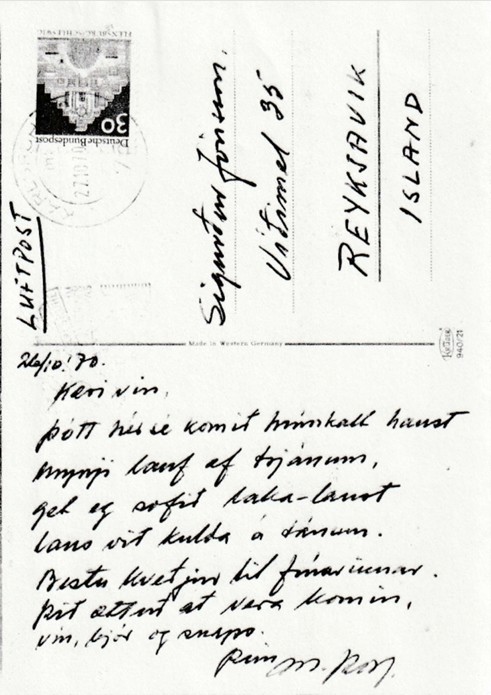 FLENSBURG/SCHLESWIG
30
Deutsche Bundespost
27.10.70
LUFTPOST
Sigurður Jónsson.
Víðimel 35
REYKJAVIK
ISLAND
Made in Western Germany
Krüger
940/21
26/10 '70.
Kæri vin,
þótt hér sé komið hrímkalt haust
hrynji lauf af trjánum,
get eg sofið laka-laust
laus við kulda á tánum.
Bestu kveðjur til frúarinnar.
Þið ættuð at vera komin,
vín, bjór og snaps.
Þinn